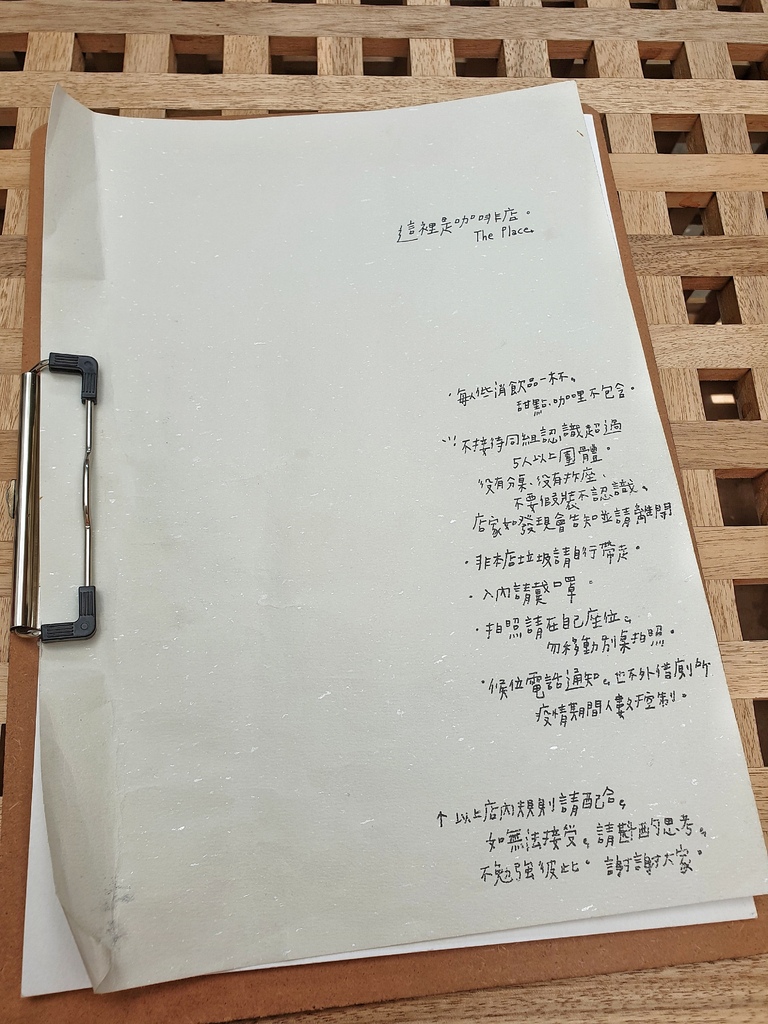 這裡是咖啡店。
The Place.
·每人低消飲品一杯。
甜點、咖哩不包含。
不接待同組認識超過
5人以上團體。
沒有分桌、沒有拆座、
不要假裝不認識。
店家如發現會告知並請離開
·非本店垃圾請自行帶走。
·入內請戴口罩。
·拍照請在自己座位。
勿移動別桌拍照。
·候位電話通知。也不外借廁所
疫情期間人數控制。
↑以上店內規則請配合。
如無法接受。請斟酌思考。
不勉強彼此。謝謝大家。